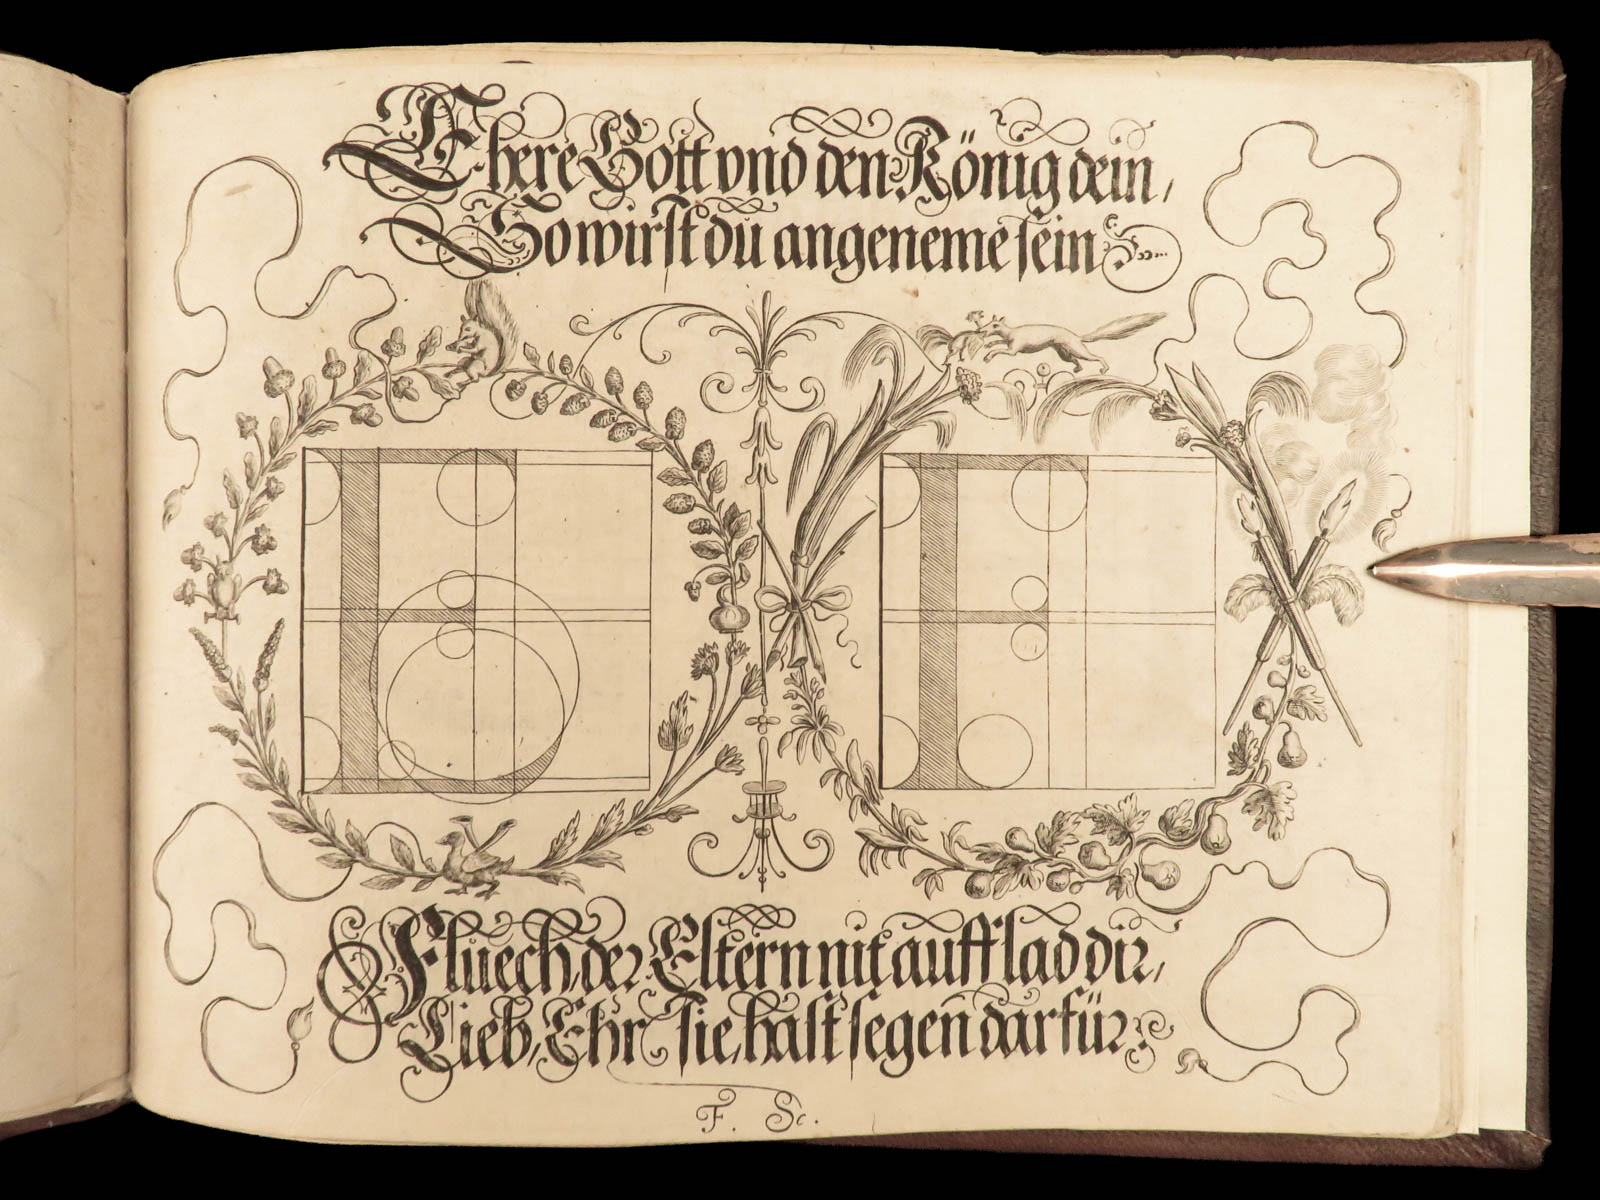 Ehere Gott vnd den König dein,
So wirst dü angeneme sein
E F
Flüech der Eltern nit auff lad dir,
Lieb, Ehr sie, hast segen darfür
F. Sc.